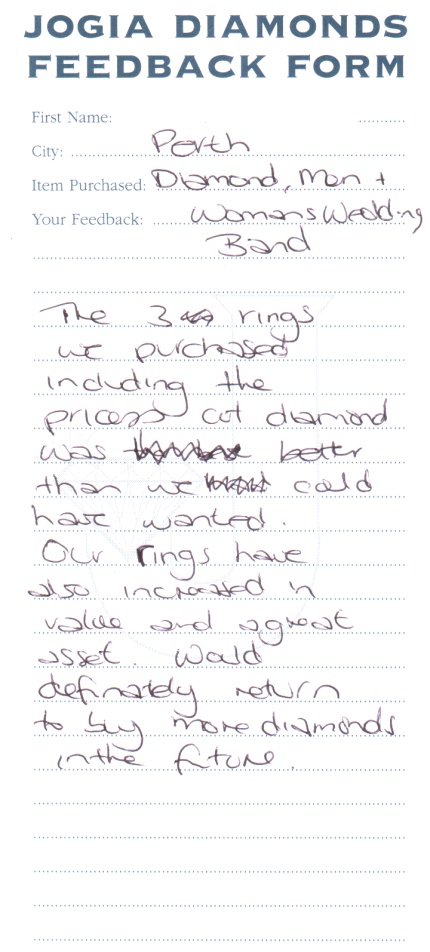 JOGIA DIAMONDS
FEEDBACK FORM
First Name:
City: Perth
Item Purchased: Diamond, Men +
Your Feedback: Womans Wedding
Band
The 3 rings
we purchased
including the
pricess cut diamond
was better
than we could
have wanted.
Our rings have
also increased in
value and a great
asset. Would
definately return
to buy more diamonds
in the future.